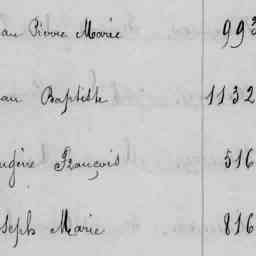 ean Pierre Marie 993
ean Baptiste 1132
ugène François 516
oseph Marie 816